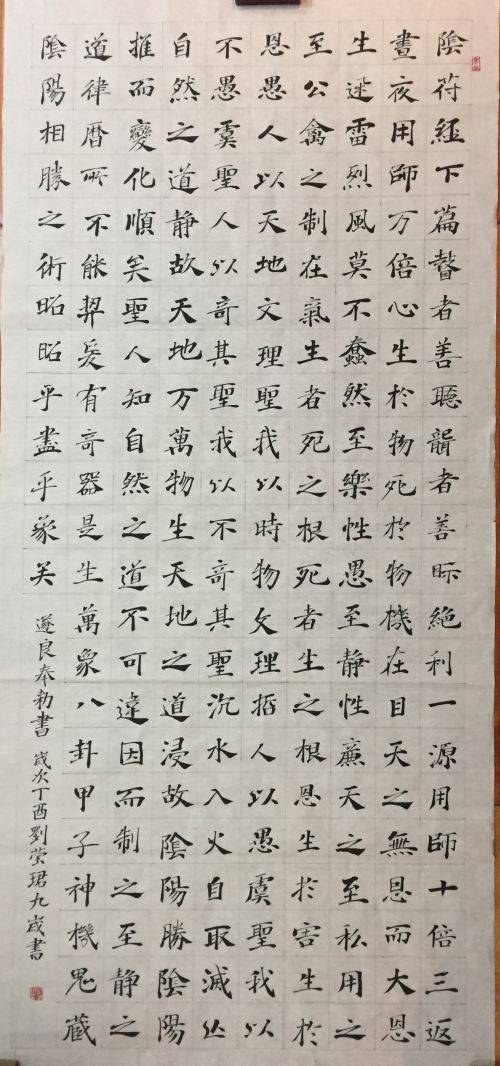 陰苻經下篇瞽者善聽聾者善眎絶利一源用師十倍三返
晝夜用師万倍心生於物死於物機在目天之無恩而大恩
生迅雷烈風莫不蠢然至樂性愚至静性廉天之至私用之
至公禽之制在氣生者死之根死者生之根恩生於害生於
恩愚人以天地文理聖我以時物文理哲人以愚虞聖我以
不愚虞聖人以奇其聖我以不奇其聖沉水入火自取滅亾
自然之道静故天地万萬物生天地之道浸故陰陽勝陰陽
推而變化順矣聖人知自然之道不可違因而制之至静之
道律曆所不能契爰有奇器是生萬象八卦甲子神機鬼藏
陰陽相勝之術昭昭乎盡乎象矣 遂良奉勅書 歲次丁酉劉瑩珺九歲書